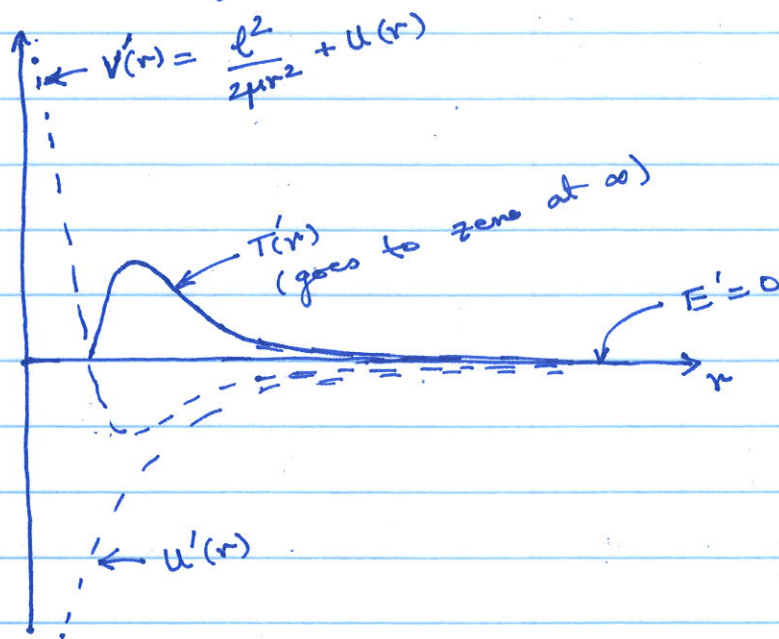 V'(r) = ℓ²/2μr² + U(r)
T'(r)
(goes to zero at ∞)
E' = 0
r
U'(r)